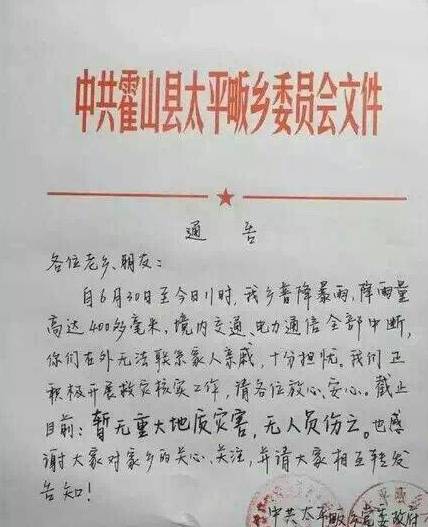 中共霍山县太平畈乡委员会文件
通告
各位老乡、朋友：
自6月30日至今日11时，我乡普降暴雨，降雨量
高达400多毫米，境内交通、电力通信全部中断，
你们在外无法联系家人亲戚，十分担忧。我们正
积极开展救灾核实工作，请各位放心、安心。截止
目前：暂无重大地质灾害，无人员伤亡。也感
谢大家对家乡的关心、关注，并请大家相互转发
告知！
中共太平畈乡党委政府